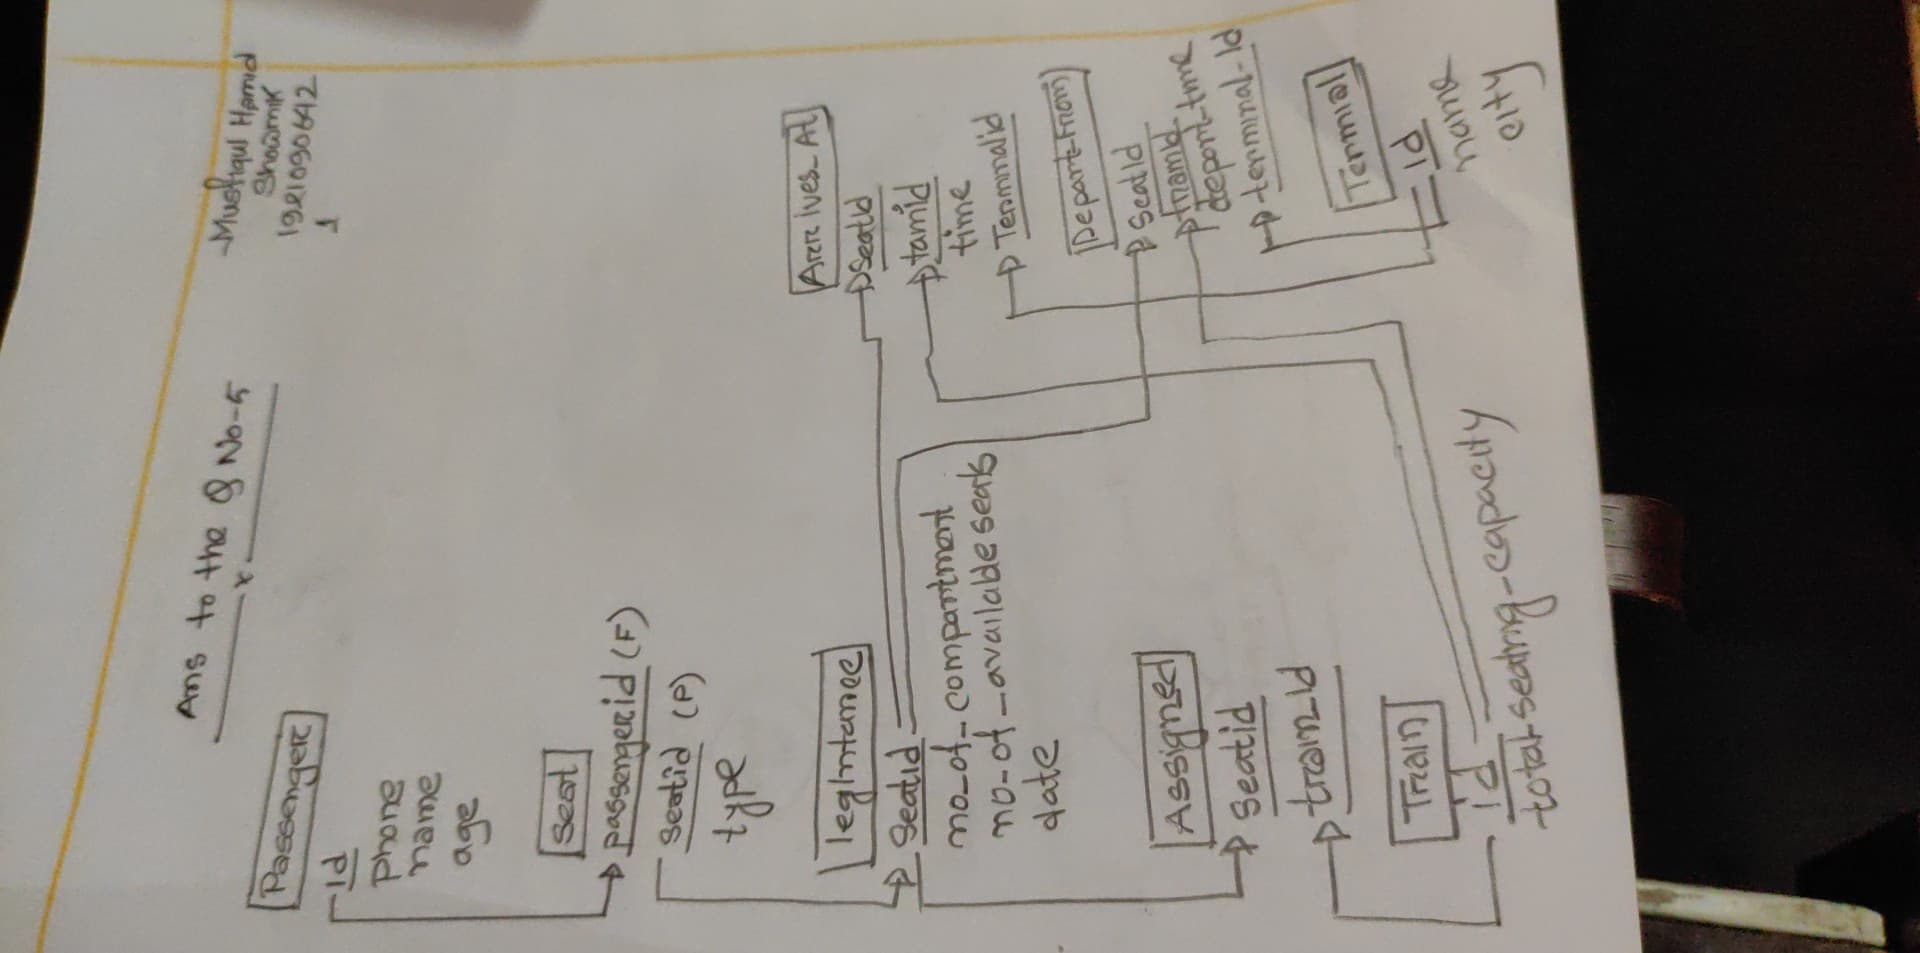 Mustiqul Hamid
Showmik
1
Ans to the Q No-5
x
Passenger
id
phone
name
age
Seat
passengerid (F)
seatid (P)
type
legIntance
seatid
no_of_compartment
no-of_available seats
date
Assigned
seatid
train_id
Train
id
total-seating-capacity
Arrives_At
Seatid
time
Depart-From
seatId
depart-time
terminal-Id
Termial
id
name
city